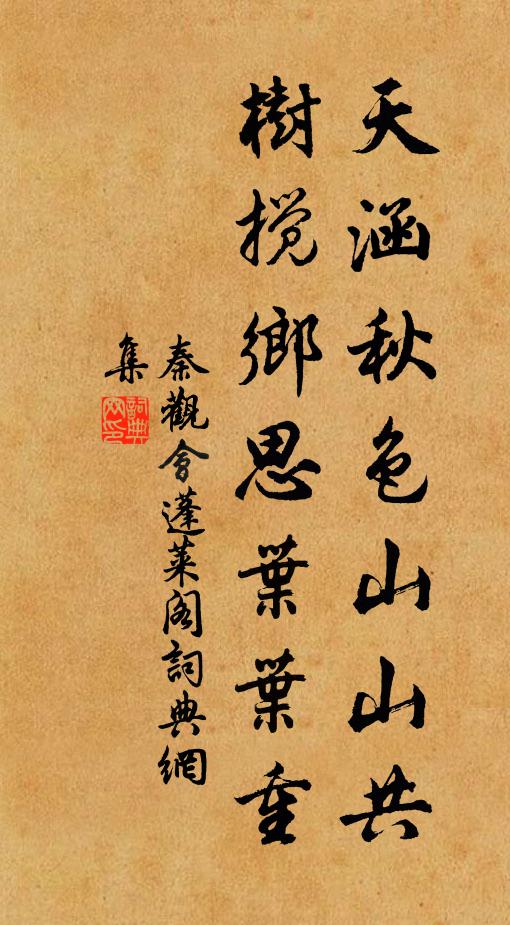 天涵秋色山山共
樹攪鄉思葉葉重
秦觀會蓬萊閣詞典網
集
詞典網印